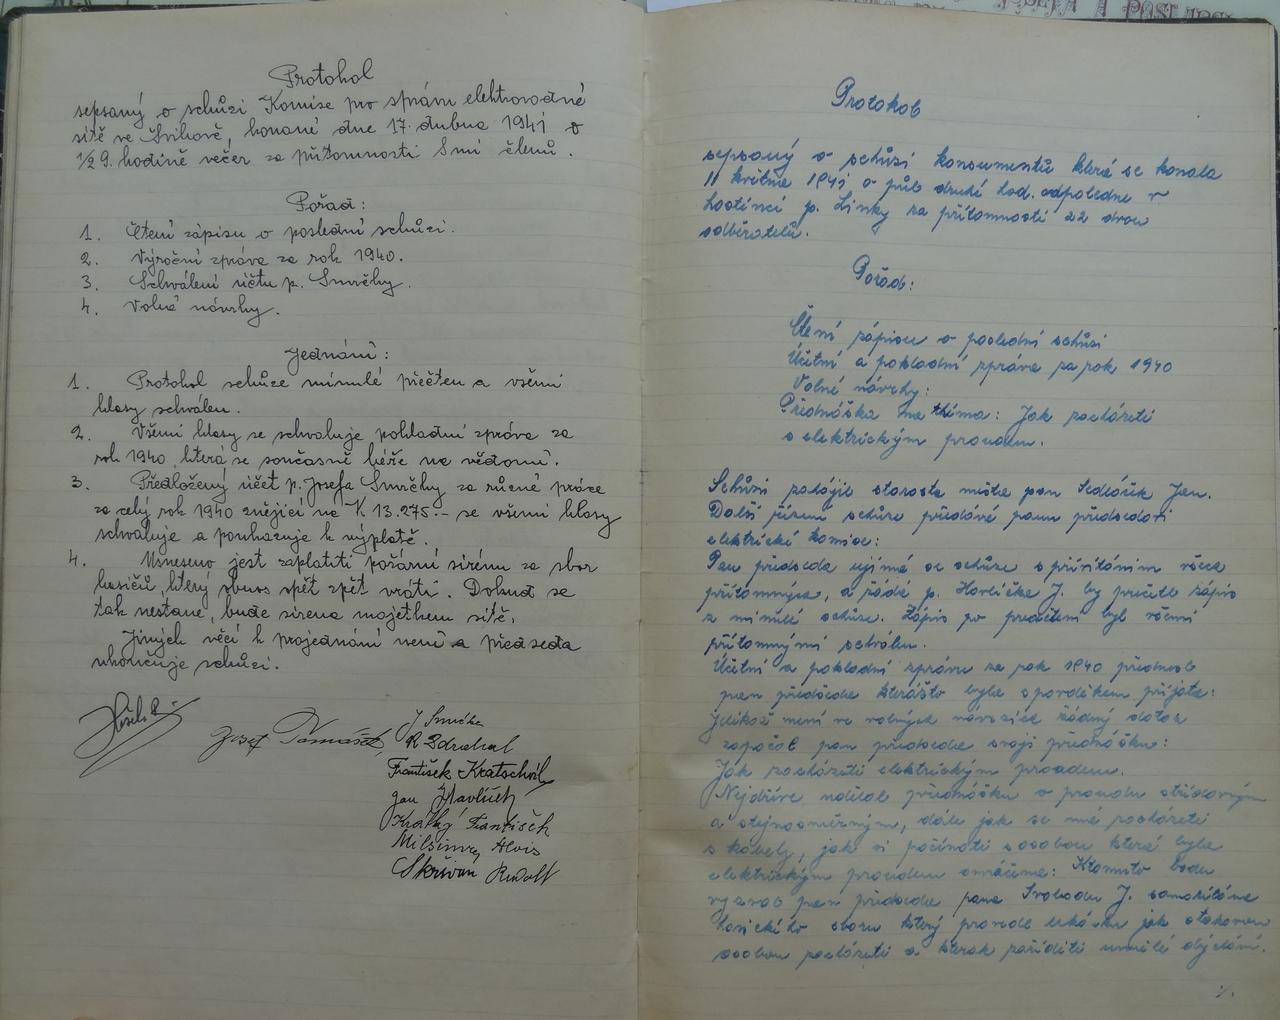 Protokol
sepsaný o schůzi Komise pro správu elektrovodné
sítě ve Švihově, konané dne 17. dubna 1941 o
1/2 9. hodině večer za přítomnosti 8mi členů.
Pořad:
1. Čtení zápisu o poslední schůzi.
2. Výroční zpráva za rok 1940.
3. Schválení účtu p. Smrčky.
4. Volné návrhy.
Jednání:
1. Protokol schůze minulé přečten a všemi
hlasy schválen.
2. Všemi hlasy se schvaluje pokladní zpráva za
rok 1940, která se současně béře na vědomí.
3. Předložený účet p. Josefa Smrčky za různé práce
za celý rok 1940 znějící na K 13.275.– se všemi hlasy
schvaluje a poukazuje k výplatě.
4. Usneseno jest zaplatiti požární sirénu za sbor
hasičů, který obnos spět zpět vrátí. Dokud se
tak nestane, bude sirena majetkem sítě.
Jiných věcí k projednání není a předseda
ukončuje schůzi.
Josef Tomášek
J Smrčka
R Zdrahal
František Kratochvíl
Jan Havlíček
Krátký František
Alois
Skřivan Rudolf
Protokol
sepsaný o schůzi konsumentů která se konala
11 května 1941 o půl druhé hod. odpoledne v
hostinci p. Linky za přítomnosti 22 dvou
odběratelů.
Pořad:
Čtení zápisu o poslední schůzi
Účetní a pokladní zpráva za rok 1940
Volné návrhy:
Přednáška na théma: Jak zacházeti
s elektrickým proudem.
Schůzi zahájil starosta města pan Sedláček Jan.
Další řízení schůze předává panu předsedovi
elektrické komise:
Pan předseda ujímá se schůze s přivítáním všech
přítomných, a žádá p. Havlíčka J. by přečetl zápis
z minulé schůze. Zápis po přečtení byl všemi
přítomnými schválen.
Účetní a pokladní zprávu za rok 1940 přednesl
pan předseda kterážto byla s povděkem přijata:
Jelikož není ve volných návrzích žádný dotaz
započal pan předseda svoji přednášku:
Jak zacházeti elektrickým proudem.
Nejdříve udělal přednášku o proudu střídavým
a stejnosměrným, dále jak se má zacházeti
s kabely, jak si počínati s osobou která byla
elektrickým proudem omráčena: K tomuto bodu
vyzval pan předseda pana Svobodu J. samaritána
hasického sboru který provede ukázku jak s takovou
osobou zacházeti a kterak zaříditi umělé dýchání.